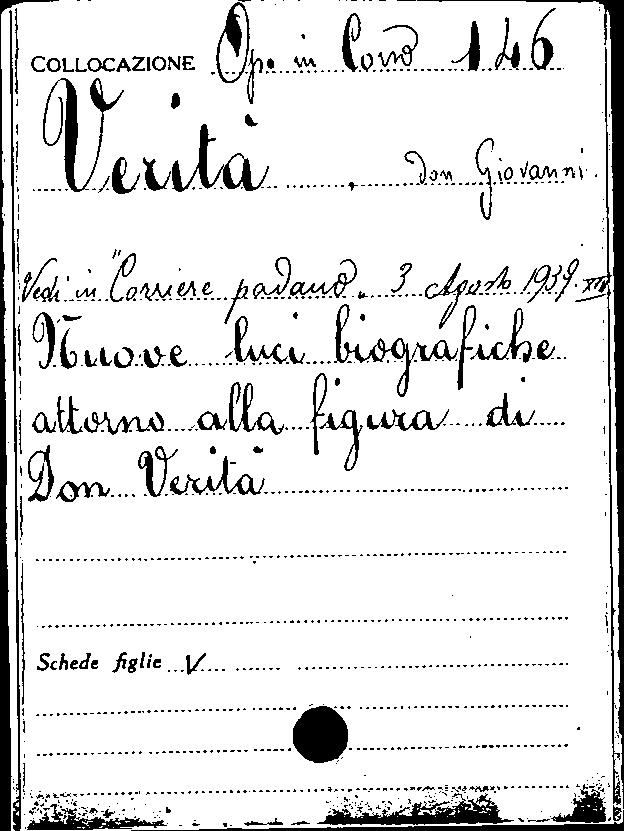 COLLOCAZIONE Op. in Corso 146
Verità, don Giovanni.
Vedi in "Corriere padano" 3 Agosto 1939. XVII
Nuove luci biografiche
attorno alla figura di
Don Verità
Schede figlie V